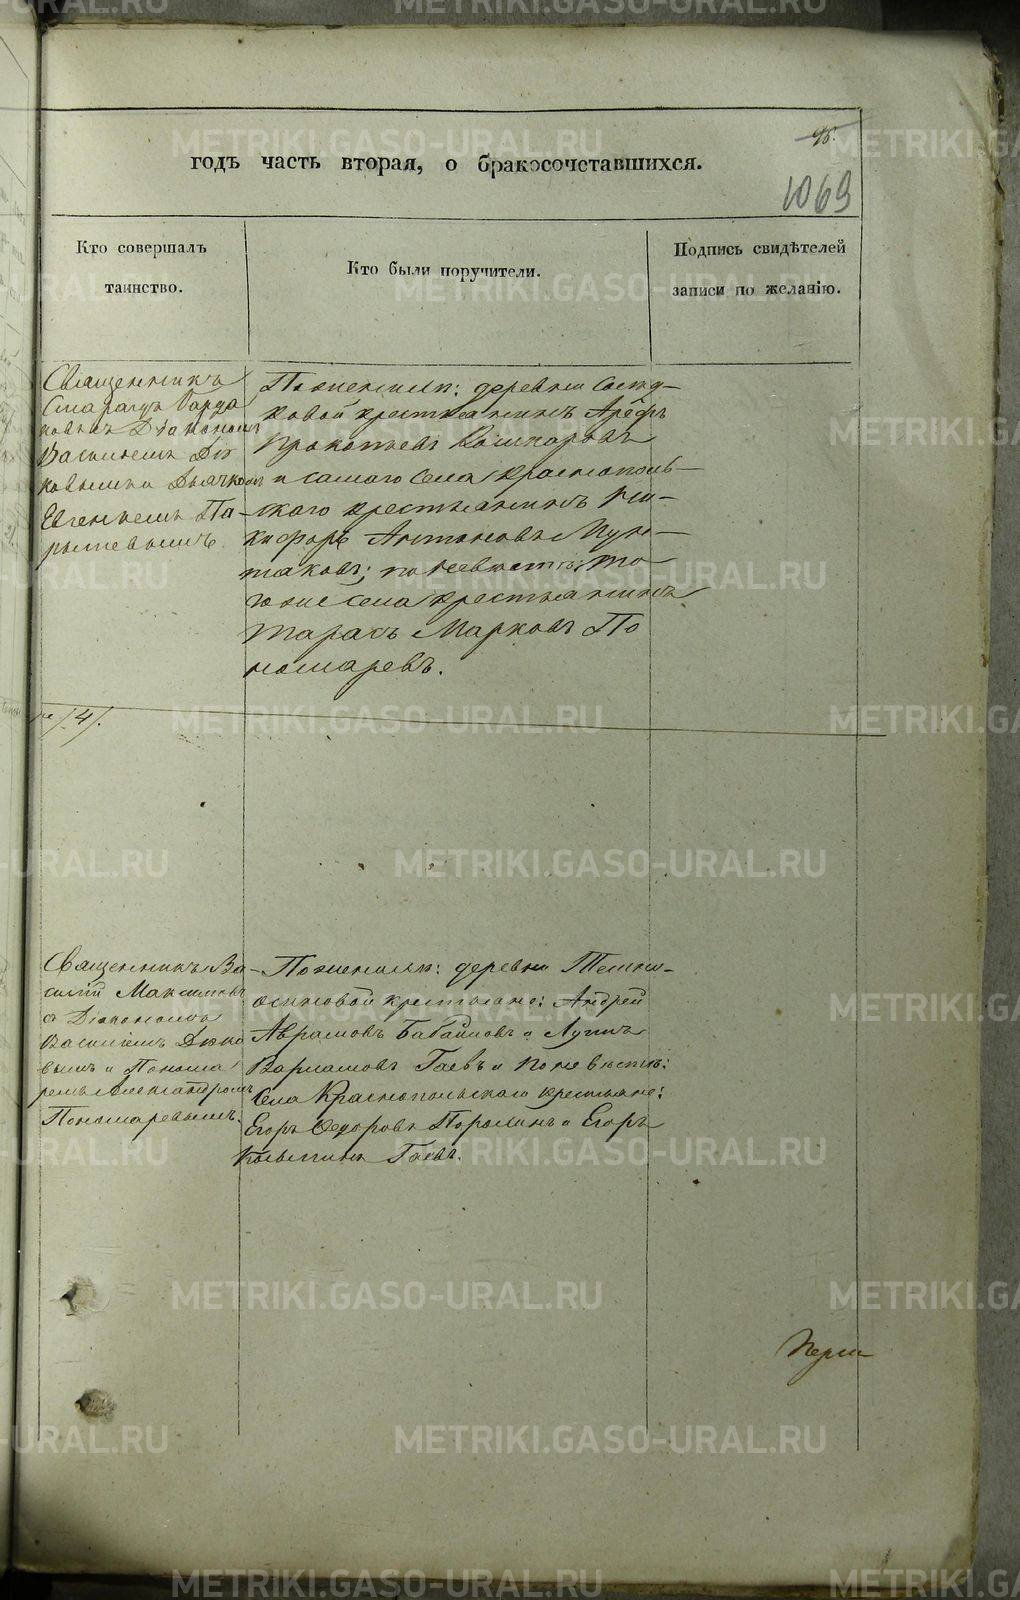 95.
годъ часть вторая, о бракосочетавшихся.
1069
Кто совершалъ
таинство.
Кто были поручители.
Подпись свидѣтелей
записи по желанію.
Священникъ
Смарагдъ
Діакономъ
Василіемъ Дія
ковымъ и Дьячкомъ
Евгеніемъ Па-
рышевымъ.
По женихѣ: деревни
ковой крестьянинъ Арефъ
Прокопьевъ
и самого села Краснополь-
скаго крестьянинъ Ни-
кифоръ Антоновъ Мун-
таковъ; по невѣстѣ: то
го же села крестьянинъ
Тарасъ Марковъ По
номаревъ.
/4/.
Священникъ Ва-
силій Максимовъ
съ Діакономъ
Василіемъ Діяко
вымъ и Понома
ремъ Александромъ
Пономаревымъ.
По женихѣ: деревни
осиновой крестьяне: Андрей
Аврамовъ Бабайловъ и Лупъ
Варламовъ Гаевъ и по невѣстѣ:
Села Краснопольскаго крестьяне:
Егоръ Ѳедоровъ и Егоръ
Козьминъ Гаевъ.
METRIKI.GASO-URAL.RU